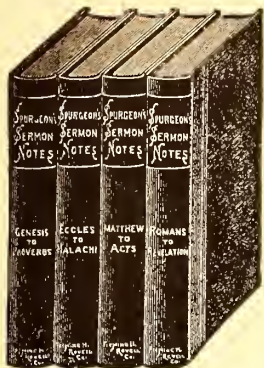 SPURGEON'S
SERMON
NOTES
GENESIS
TO
PROVERBS
SPURGEON'S
SERMON
NOTES
ECCLES
TO
MALACHI
SPURGEON'S
SERMON
NOTES
MATTHEW
TO
ACTS
FLEMING H.
REVELL
CO.
SPURGEON'S
SERMON
NOTES
ROMANS
TO
REVELATION
FLEMING H.
REVELL
CO.